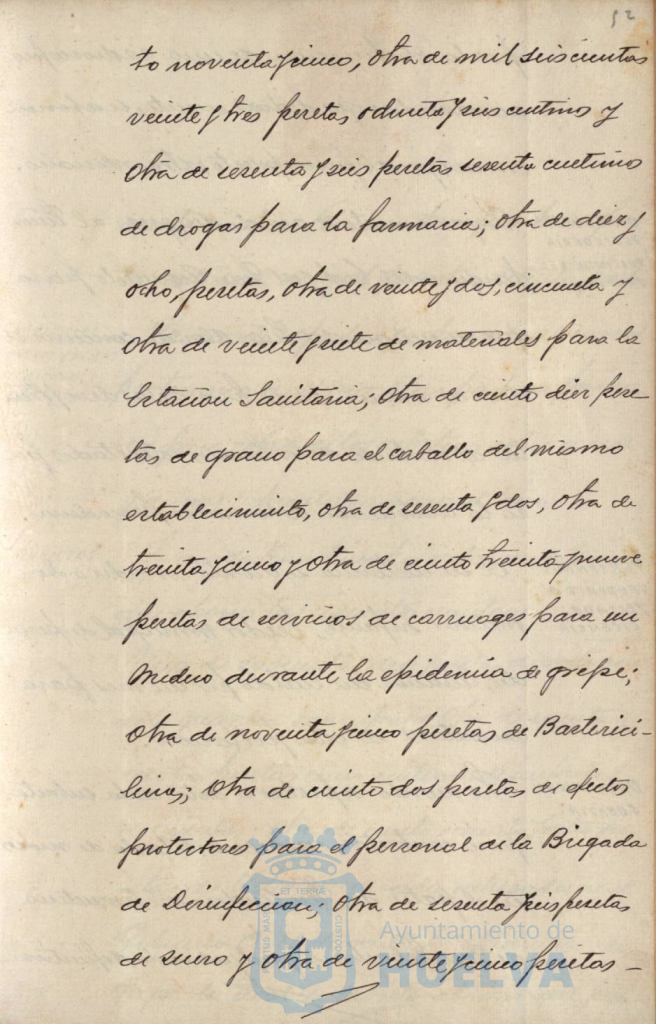 52
to noventa y cinco, otra de mil seiscientas
veinte y tres pesetas ochenta y seis centimos y
otra de sesenta y seis pesetas sesenta centimos
de drogas para la farmacia; otra de diez y
ocho, pesetas, otra de veinte y dos, cincuenta y
otra de veinte y siete de materiales para la
Estacion Sanitaria; otra de ciento diez pese-
tas de grano para el caballo del mismo
establecimiento, otra de sesenta y dos, otra de
treinta y cinco y otra de ciento treinta y nueve
pesetas de servicios de carruages para un
Medico durante la epidemia de gripe;
otra de noventa y cinco pesetas de Bacterici-
linas; otra de ciento dos pesetas de efectos
protectores para el personal de la Brigada
de Desinfeccion; otra de sesenta y seis pesetas
de suero y otra de veinte y cinco pesetas -
ET TERRÆ
CUSTODIA
PORTUS MARIS
Ayuntamiento de
HUELVA